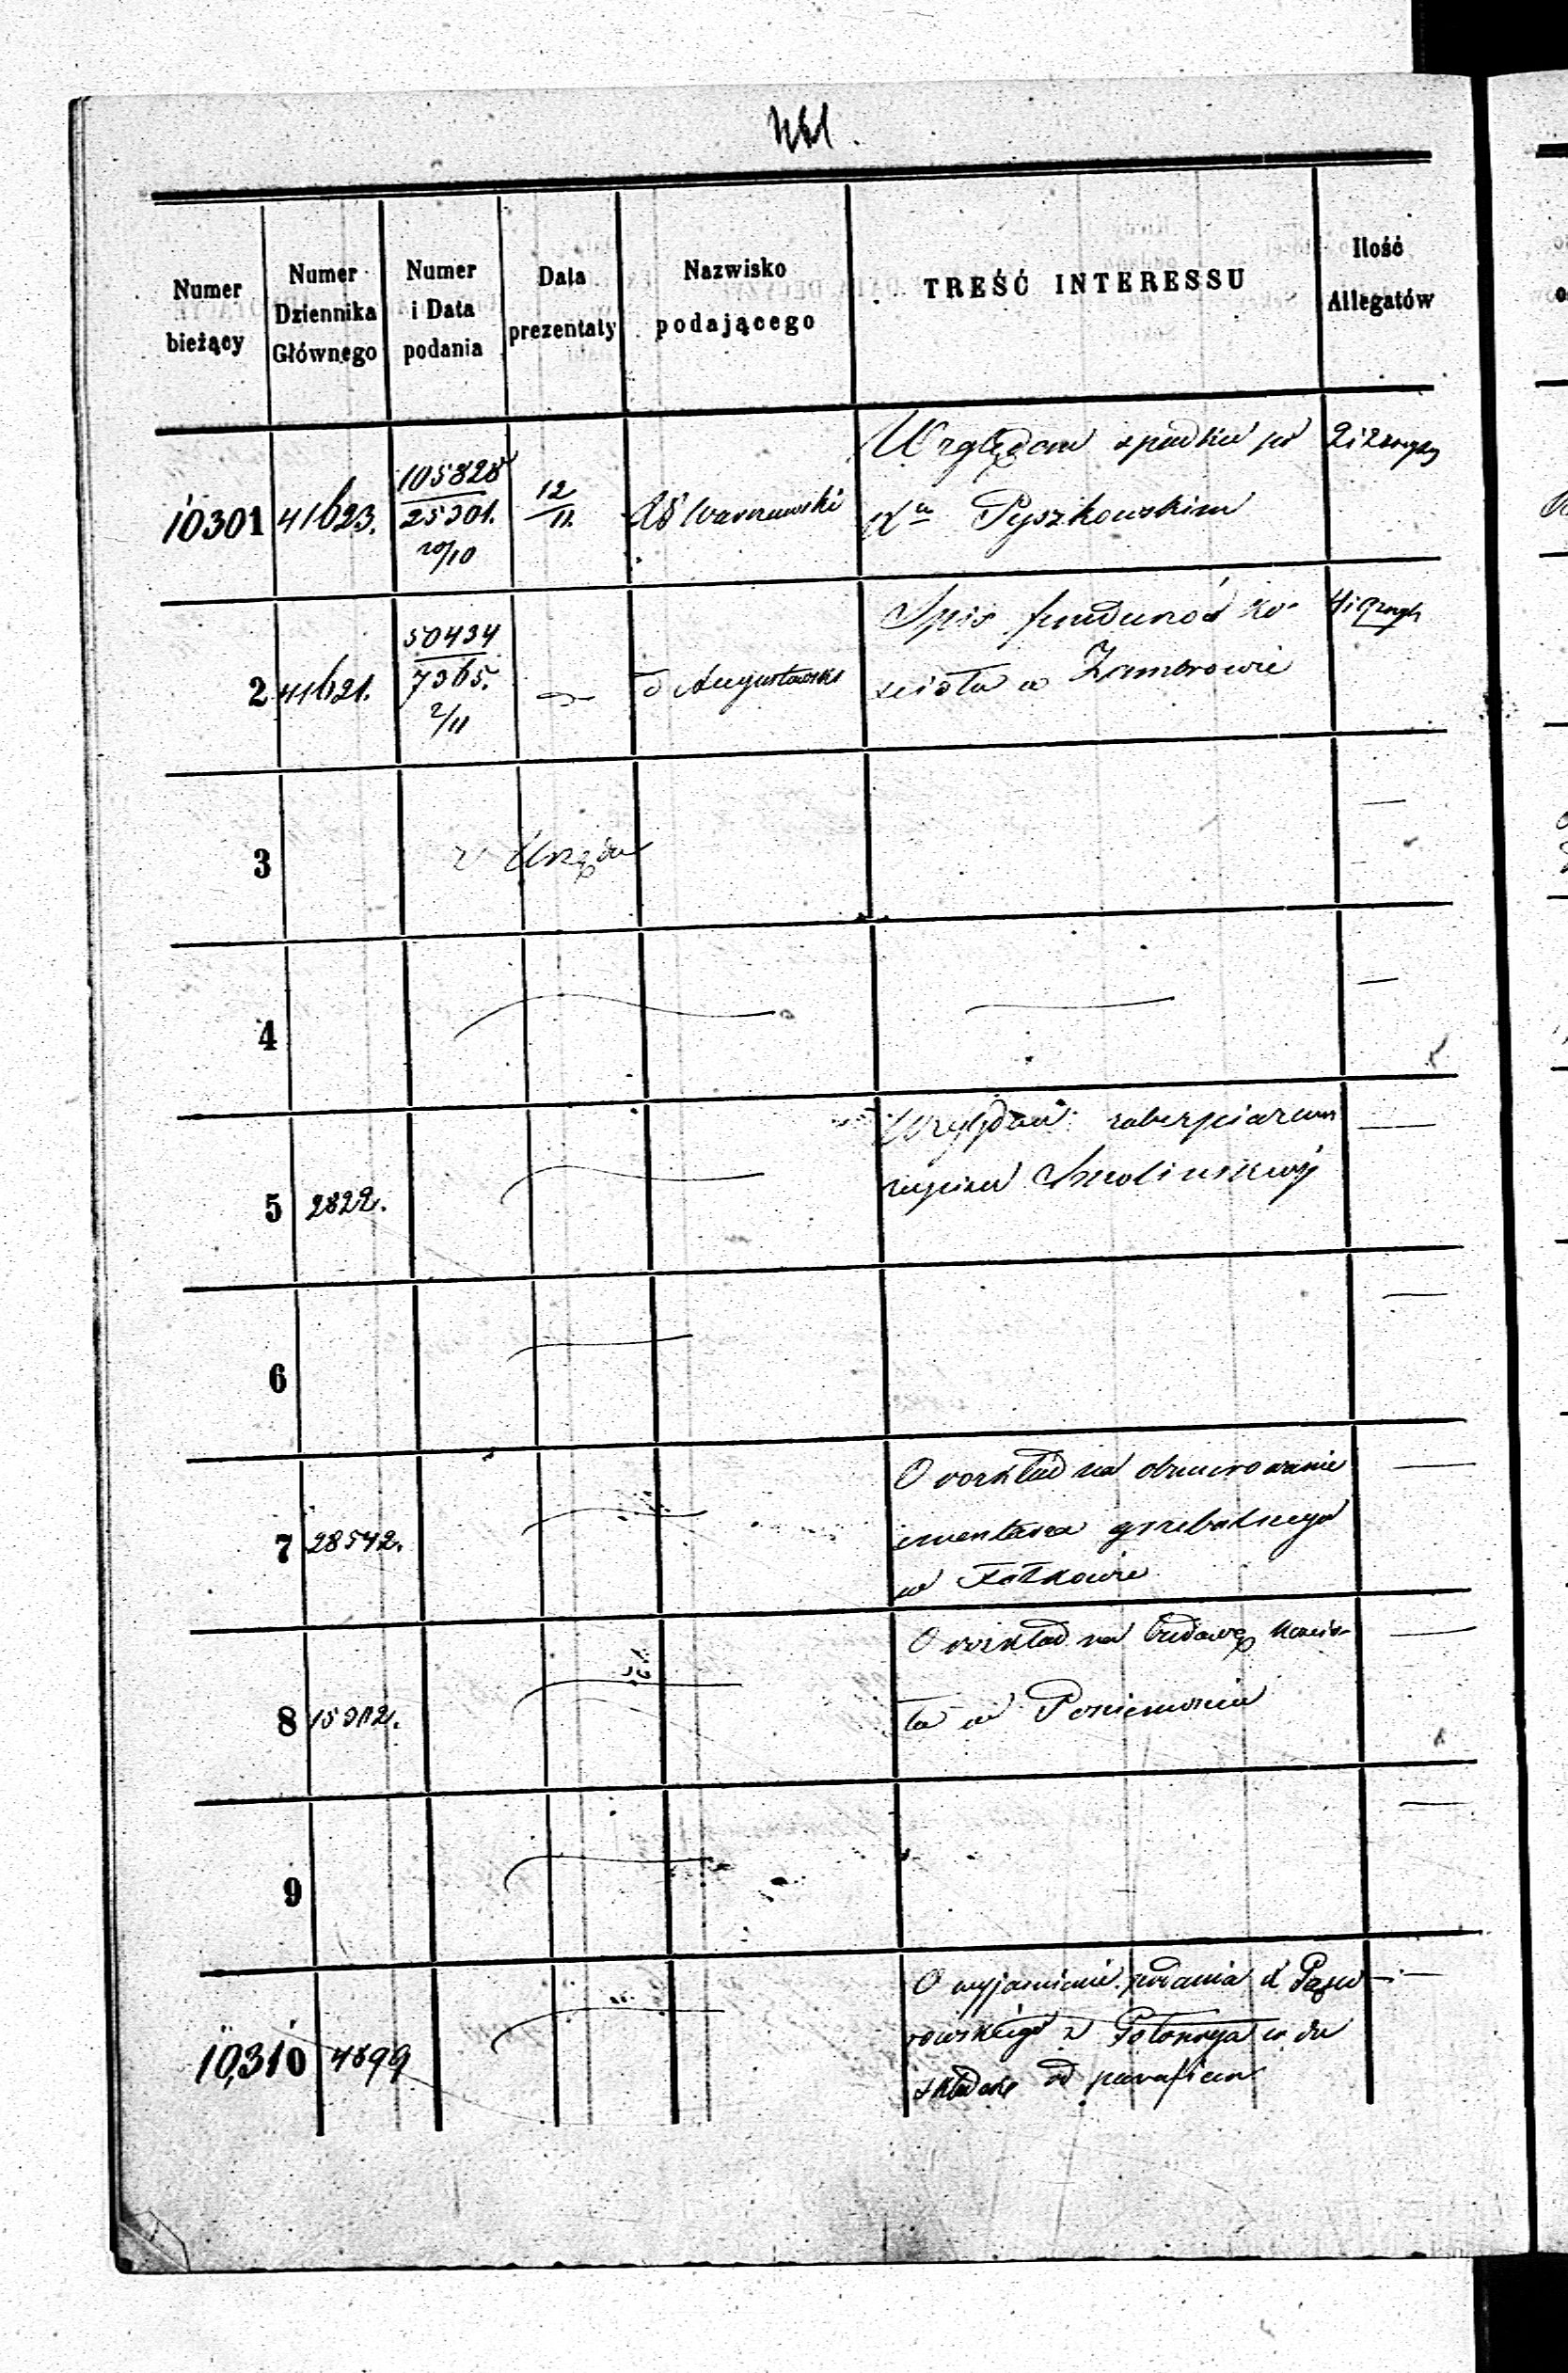 Numer bieżący
Numer Dziennika Głównego
Numer i Data podania
Data prezentaty
Nazwisko podającego
TREŚĆ INTERESSU
Ilość Allegatów
10301
41623.
105828
25301.
20/10
12/11.
Warszawski
Względem spadku po
Xu Pyszkowskim
2 i 2
2
41621.
50434
7365.
2/11
Augustowski
Spis funduszów ko-
ścioła w Zambrowie
4 i
3
z Urzędu
4
5
2822.
Względem zabezpieczenia
Smolińskiej
6
7
28542.
O rozkład na obmurowanie
cmentarza grzebalnego
w
8
O rozkład na budowę kościo-
ła w Poniemoniu
9
10,310
4899
O wyjaśnienie podania X
z w do
składek od parafian